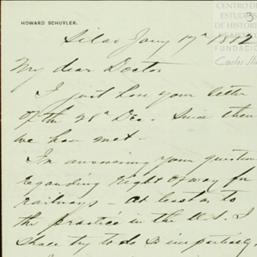 HOWARD SCHUYLER.
CENTRO DE
ESTUDIOS
DE HISTORIA
FUNDACIÓN
3
Silao Jany 17th 18
My dear Doctor
I just have your letter
of the 28th Dec. - Since then
we have met -
In answering your question
regarding right of way for
railways - at least as to
the practice in the U.S. I
shall try to do so impartially,